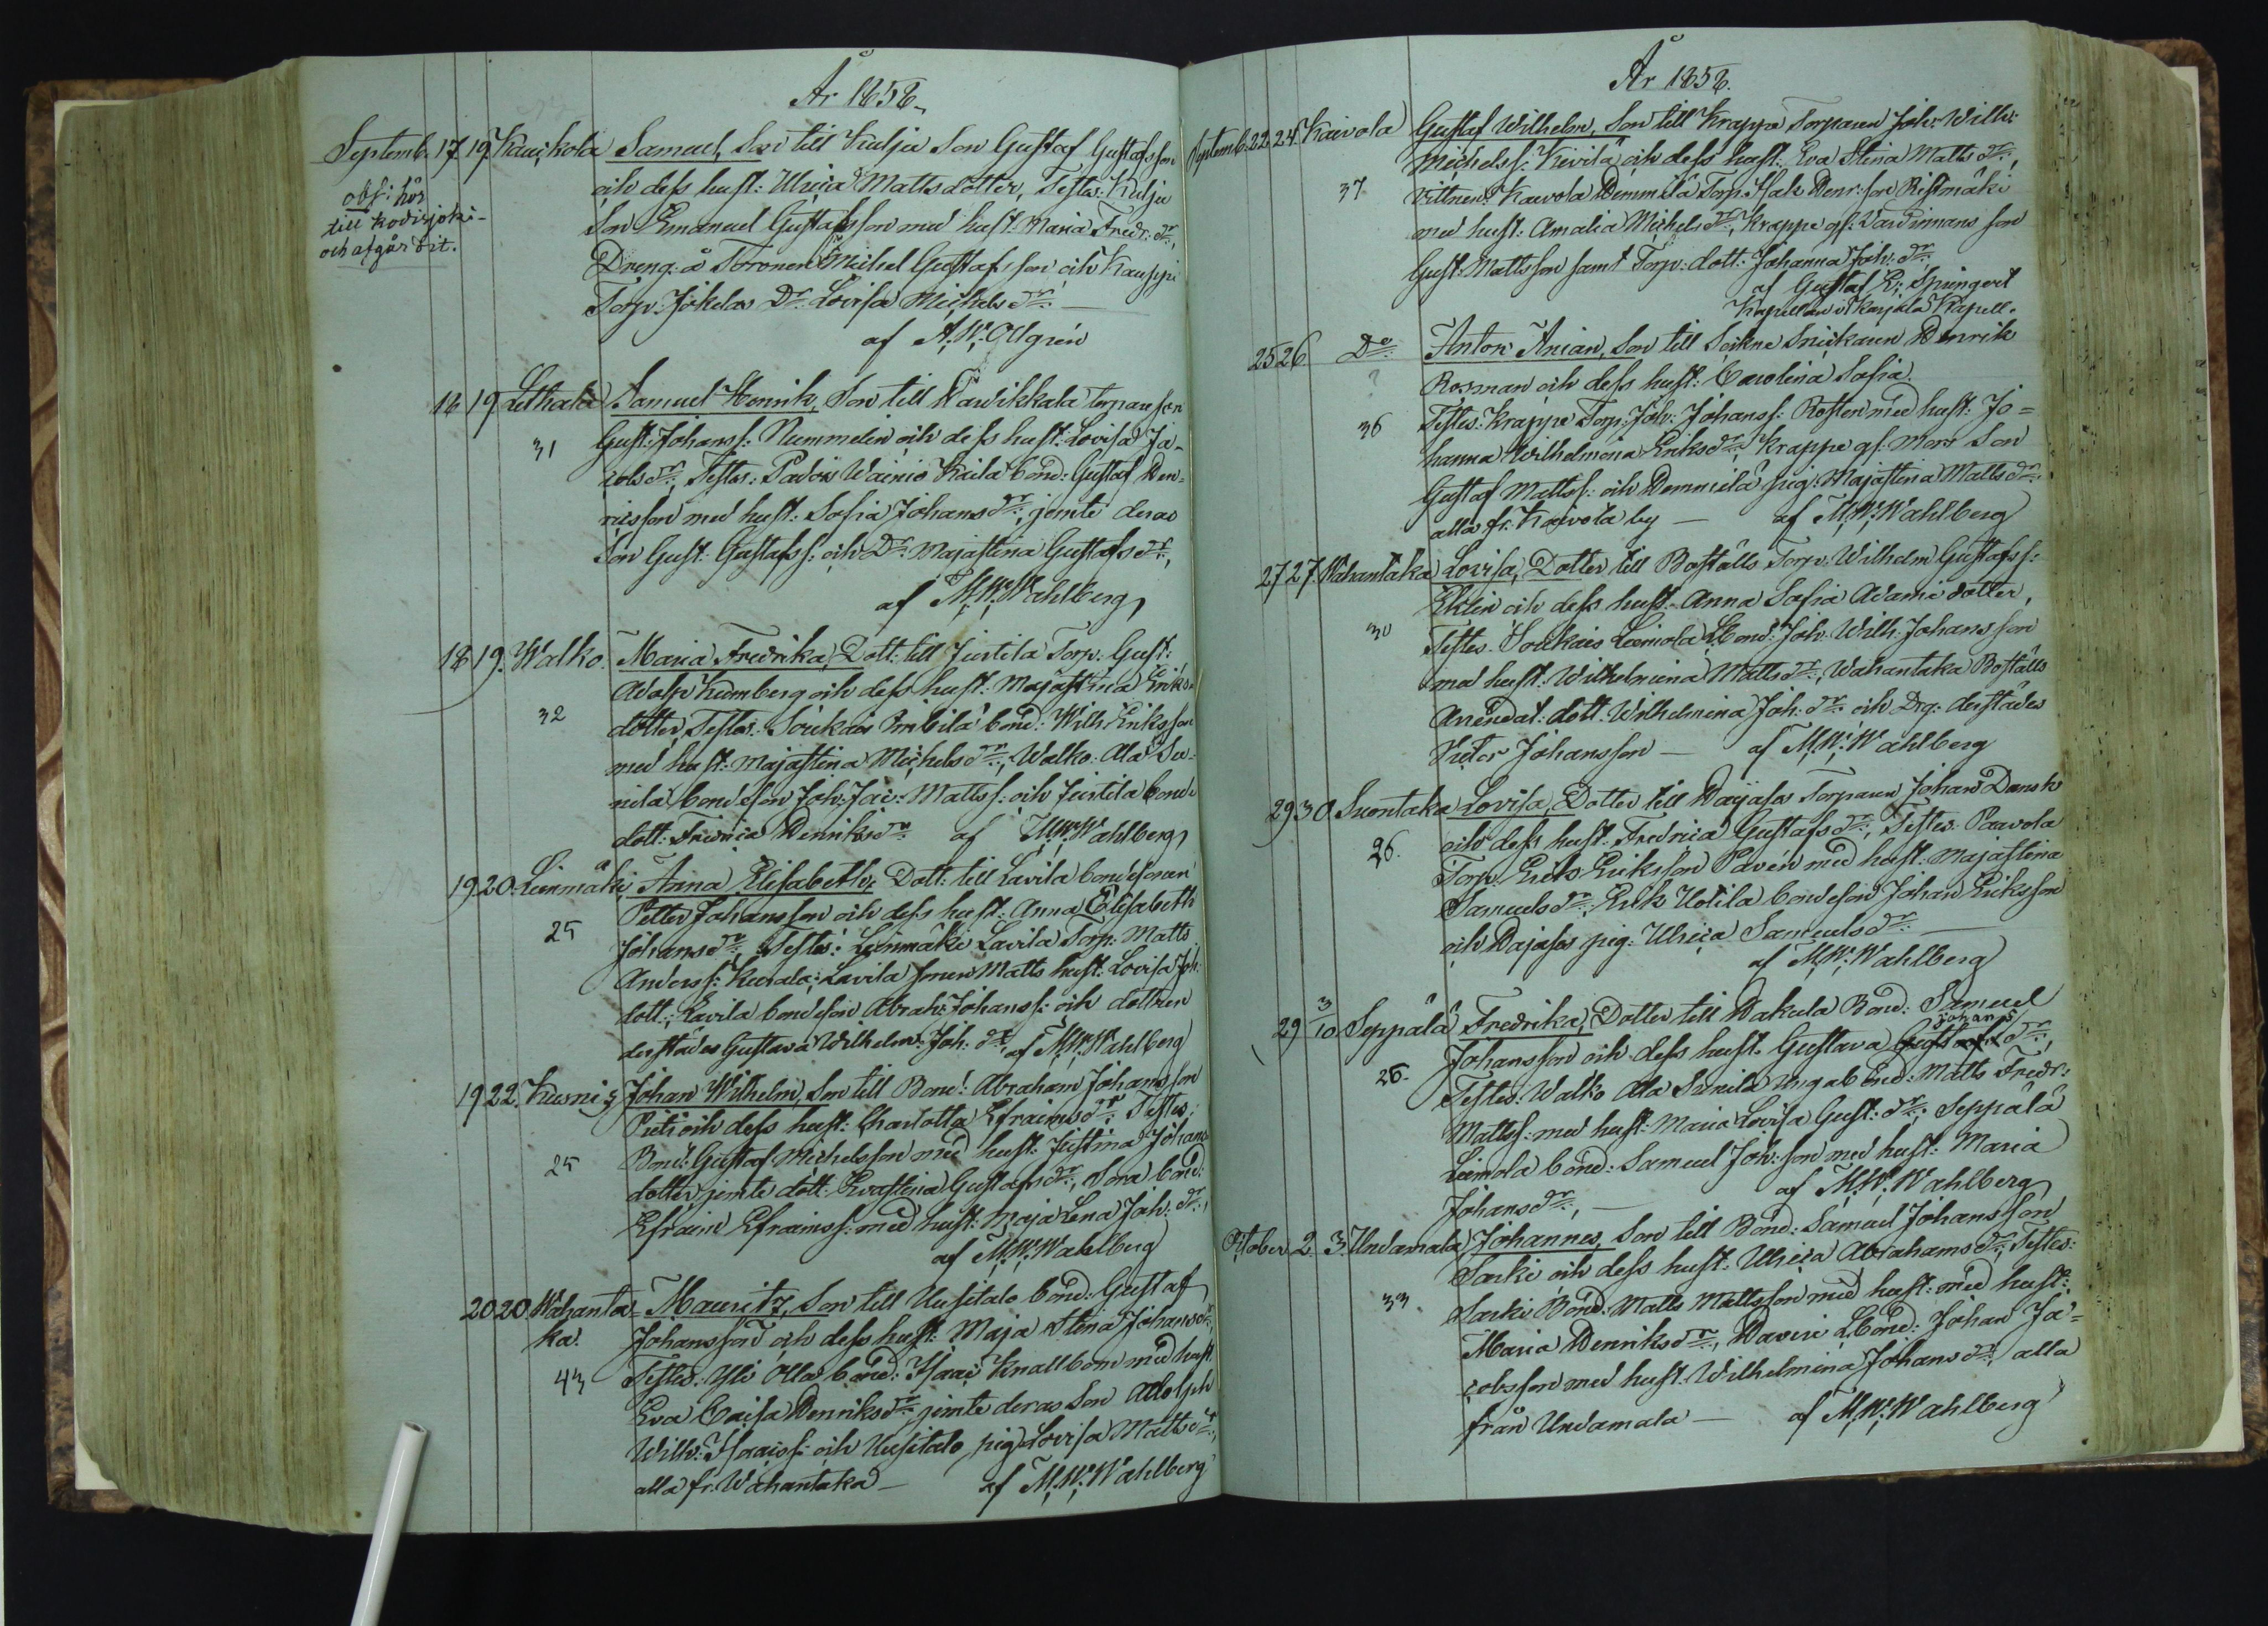 År 1858.
Septemb. 17 19 Kauskola Samuel, Son till Kulju Son Gustaf Gustafsson
och dess hust: Ulrica Mattsdotter, Testes: Kulju
obs: hör
till Kodisjoki
och afgår dit.
Son Emanuel Gustafsson med hust: Maria Fredr: dr,
Dreng: å Toronen Michel Gustafsson och Kauppi
Torp: Jokelas Dr Lovisa Michels dr
af A. W. Ollgrén
18 19 Lethala Samuel Henrik, Son till Wawikkala torpareson
31 Gust: Johanss: Nummelin och dess hust: Lovisa Ja-
cobs dr, Testes: Wainio Kaila bond: Gustaf Hen-
ricsson med hust: Sofia Johans dr, jemte deras
Son Gust: Gustafss: och Dr Majastina Gustafs dr,
af M. W. Wahlberg
18 19. Walko. Maria Fredrika, Dott: till Juvtila Torp: Gust:
Adolf Kumberg och dess hust: Majastina Eriks-
32 dotter, Testes: Soukais bond: Wilh: Eriksson
med hust: Majastina Michels dr, Walko Ala Su-
nila bondeson Joh: Jac: Mattss: och Juvtila bonde
dott: Fredrica Henriks dr af M. W. Wahlberg
19 20. Leinmäki, Anna Elisabeth, Dott: till Lavila bondesonen
Petter Johansson och dess hust: Anna Elisabeth
25 Johans dr, Testes: Leinmäki Lavila Torp: Matts
Anderss: Kurala, Lavila sonen Matts hust: Lovisa Joh:
dott:, Lavila bondeson Abrah: Johanss: och dottren
derstädes Gustava Wilhelm: Joh: dr, af M. W. Wahlberg
19 22. Kusnis, Johan Wilhelm, Son till Bond: Abraham Johansson
Pieti och dess hust: Charlotta Efraims dr, Testes:
25 Bond: Gustaf Michelsson med hust: Justina Johans-
dotter jemte dott: Evastina Gustafs dr, Sora bond:
Efraim Efraimss: med hust: Maja Lena Joh: dr,
af M. W. Wahlberg
20 20. Wahanta- Mauritz, Son till Uusitalo bond: Gustaf
ka. Johansson och dess hust: Maja Stina Johans dr
43 Testes: Yli Olla bond: Isaac Knallbom med hust:
Eva Caisa Henriks dr jemte deras Son Adolph
Wilh: Isaacs: och Uusitalo pig: Lovisa Matts dr,
alla fr: Wahantaka – af M. W. Wahlberg
År 1858.
Septemb. 22 24. Kaivola Gustaf Wilhelm, Son till Krappe Torparen Joh: Wilh:
Michelss: Kivilä och dess hust: Eva Stina Matts dr,
37 Vittnen: Kaivola Hemmilä Torp: Isak Henr:son Ristmäki
med hust: Amalia Michels dr, Krappe gf: Vardinmans son
Gust: Mattsson samt Torp: dott: Johanna Joh: dr,
af Gustaf E: Spungert
Kapellan i Karjala Kapell.
25 26. Do Anton Anian, Son till Sockne Snickaren Henrik
? Rosman och dess hust: Carolina Sofia.
36 Testes: Krappe Torp: Joh: Johanss: Rosten med hust: Jo-
hanna Wilhelmina Eriks dr, Krappe gf: mors Son
Gustaf Mattss: och Hemmilä pig: Majastina Matts dr.
alla fr: Kaivola by – af M. W. Wahlberg
27 27. Wahantaka Lovisa, Dotter till Boställs Torp: Wilhelm Gustafss:
Eklin och dess hust: Anna Sofia Adami dotter,
30 Testes: Soukais Liemola Lbond: Joh: Wilh: Johansson
med hust: Wilhelmina Matts dr, Wahantaka Boställs
Arrendat: dott: Wilhelmina Joh: dr och Drg: derstädes
Victor Johansson – af M. W. Wahlberg
29 30 Suontaka Lovisa, Dotter till Hayasa Torparen Johan Dansk
och dess hust: Fredrica Gustafs dr, Testes: Paavola
26. Torp: Erik Eriksson Pavén med hust: Majastina
Samuels dr, Erik Uotila bondeson Johan Eriksson
och Hajasas pig: Ulrica Samuels dr –
af M. W. Wahlberg
29 3/10 Seppälä Fredrika, Dotter till Hakula Bond: Samuel
Johans
Johansson och dess hust: Gustava Gustafs dr,
26. Testes: Walko Ala Sunila Ungabond: Matts Fredr:
Mattss: med hust: Maria Lovisa Gust: dr: Seppälä
Liemola bond: Samuel Joh:son med hust: Maria
Johans dr, – af M. W. Wahlberg
October 2 3. Undamala Johannes, Son till Bond: Samuel Johansson
Sarki och dess hust: Ulrica Abrahams dr, Testes:
33 Sarki Bond: Matts Mattsson med hust: med hust:
Maria Henriks dr, Haveri Lbond: Johan Ja-
cobsson med hust: Wilhelmina Johans dr, alla
från Undamala – af M. W. Wahlberg